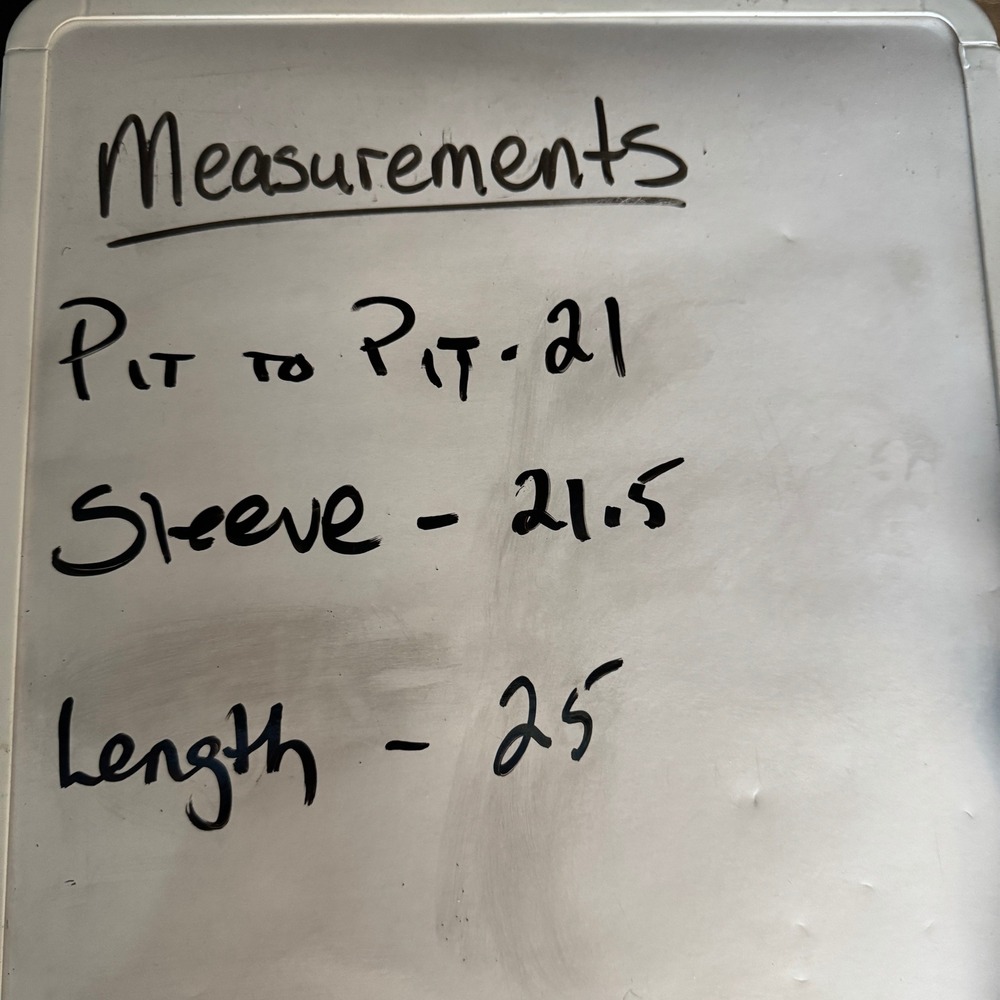 Measurements
PIT TO PIT - 21
Sleeve - 21.5
Length - 25